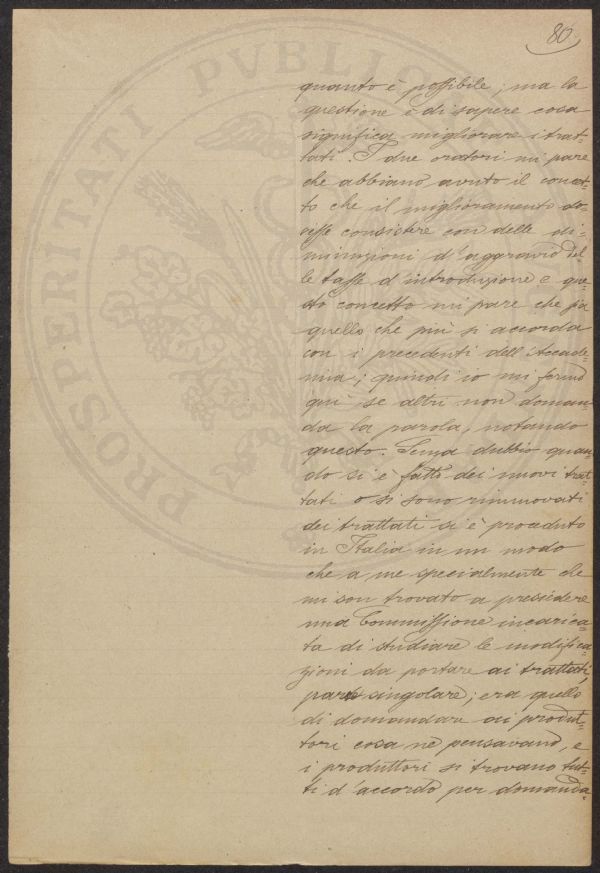 80
PROSPERITATI PVBLIC
quanto è possibile; ma la
questione è di sapere cosa
significa migliorare i trat-
tati. I due oratori mi pare
che abbiano avuto il concet-
to che il miglioramento do-
vesse consistere con delle di-
minuzioni d'aggravio del
le tasse d'introduzione e que-
sto concetto mi pare che sia
quello che più si accorda
con i precedenti dell'Accade-
mia; quindi io mi fermo
qui se altri non doman
da la parola, notando
questo. Senza dubbio quan
do si è fatto dei nuovi trat
tati o si sono rinnovati
dei trattati si è proceduto
in Italia in un modo
che a me specialmente che
mi son trovato a presiedere
una Commissione incarica-
ta di studiare le modifica-
zioni da portare ai trattati,
parve singolare; era quello
di domandare ai produt-
tori cosa ne pensavano, e
i produttori si trovano tut-
ti d'accordo per domanda-